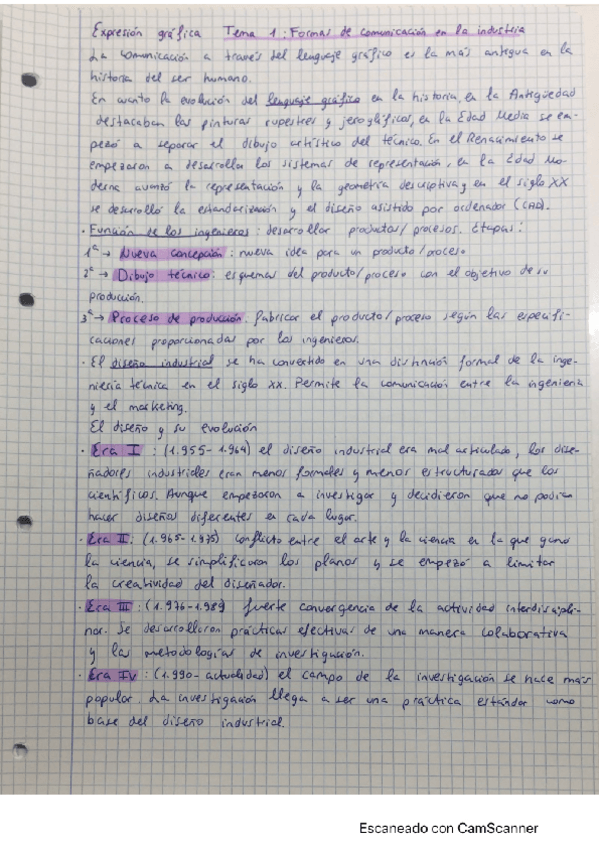 Expresión gráfica Tema 1: Formas de comunicación en la industria
La comunicación a través del lenguaje gráfico es la más antigua en la
historia del ser humano.
En cuanto la evolución del lenguaje gráfico en la historia, en la Antigüedad
destacaban las pinturas rupestres y jeroglíficos, en la Edad Media se em-
pezó a separar el dibujo artístico del técnico. En el Renacimiento se
empezaron a desarrollar los sistemas de representación, en la Edad Mo-
derna avanzó la representación y la geometría descriptiva y en el siglo XX
se desarrolló la estandarización y el diseño asistido por ordenador (CAD).
· Función de los ingenieros: desarrollar productos/procesos. Etapas:
1ª → Nueva concepción: nueva idea para un producto/proceso
2ª → Dibujo técnico: esquemas del producto/proceso con el objetivo de su
producción.
3ª → Proceso de producción: fabricar el producto/proceso según las especifi-
caciones proporcionadas por los ingenieros.
· El diseño industrial se ha convertido en una distinción formal de la inge-
niería técnica en el siglo XX. Permite la comunicación entre la ingeniería
y el marketing.
El diseño y su evolución
· Era I : (1.955-1.964) el diseño industrial era mal articulado, los dise-
ñadores industriales eran menos formales y menos estructurados que los
científicos. Aunque empezaron a investigar y decidieron que no podían
hacer diseños diferentes en cada lugar.
· Era II: (1.965-1.975) conflicto entre el arte y la ciencia en la que ganó
la ciencia, se simplificaron los planos y se empezó a limitar
la creatividad del diseñador.
· Era III: (1.976-1.989) fuerte convergencia de la actividad interdiscipli-
nar. Se desarrollaron prácticas efectivas de una manera colaborativa
y las metodologías de investigación.
· Era IV: (1.990- actualidad) el campo de la investigación se hace más
popular. La investigación llega a ser una práctica estándar como
base del diseño industrial.
Escaneado con CamScanner